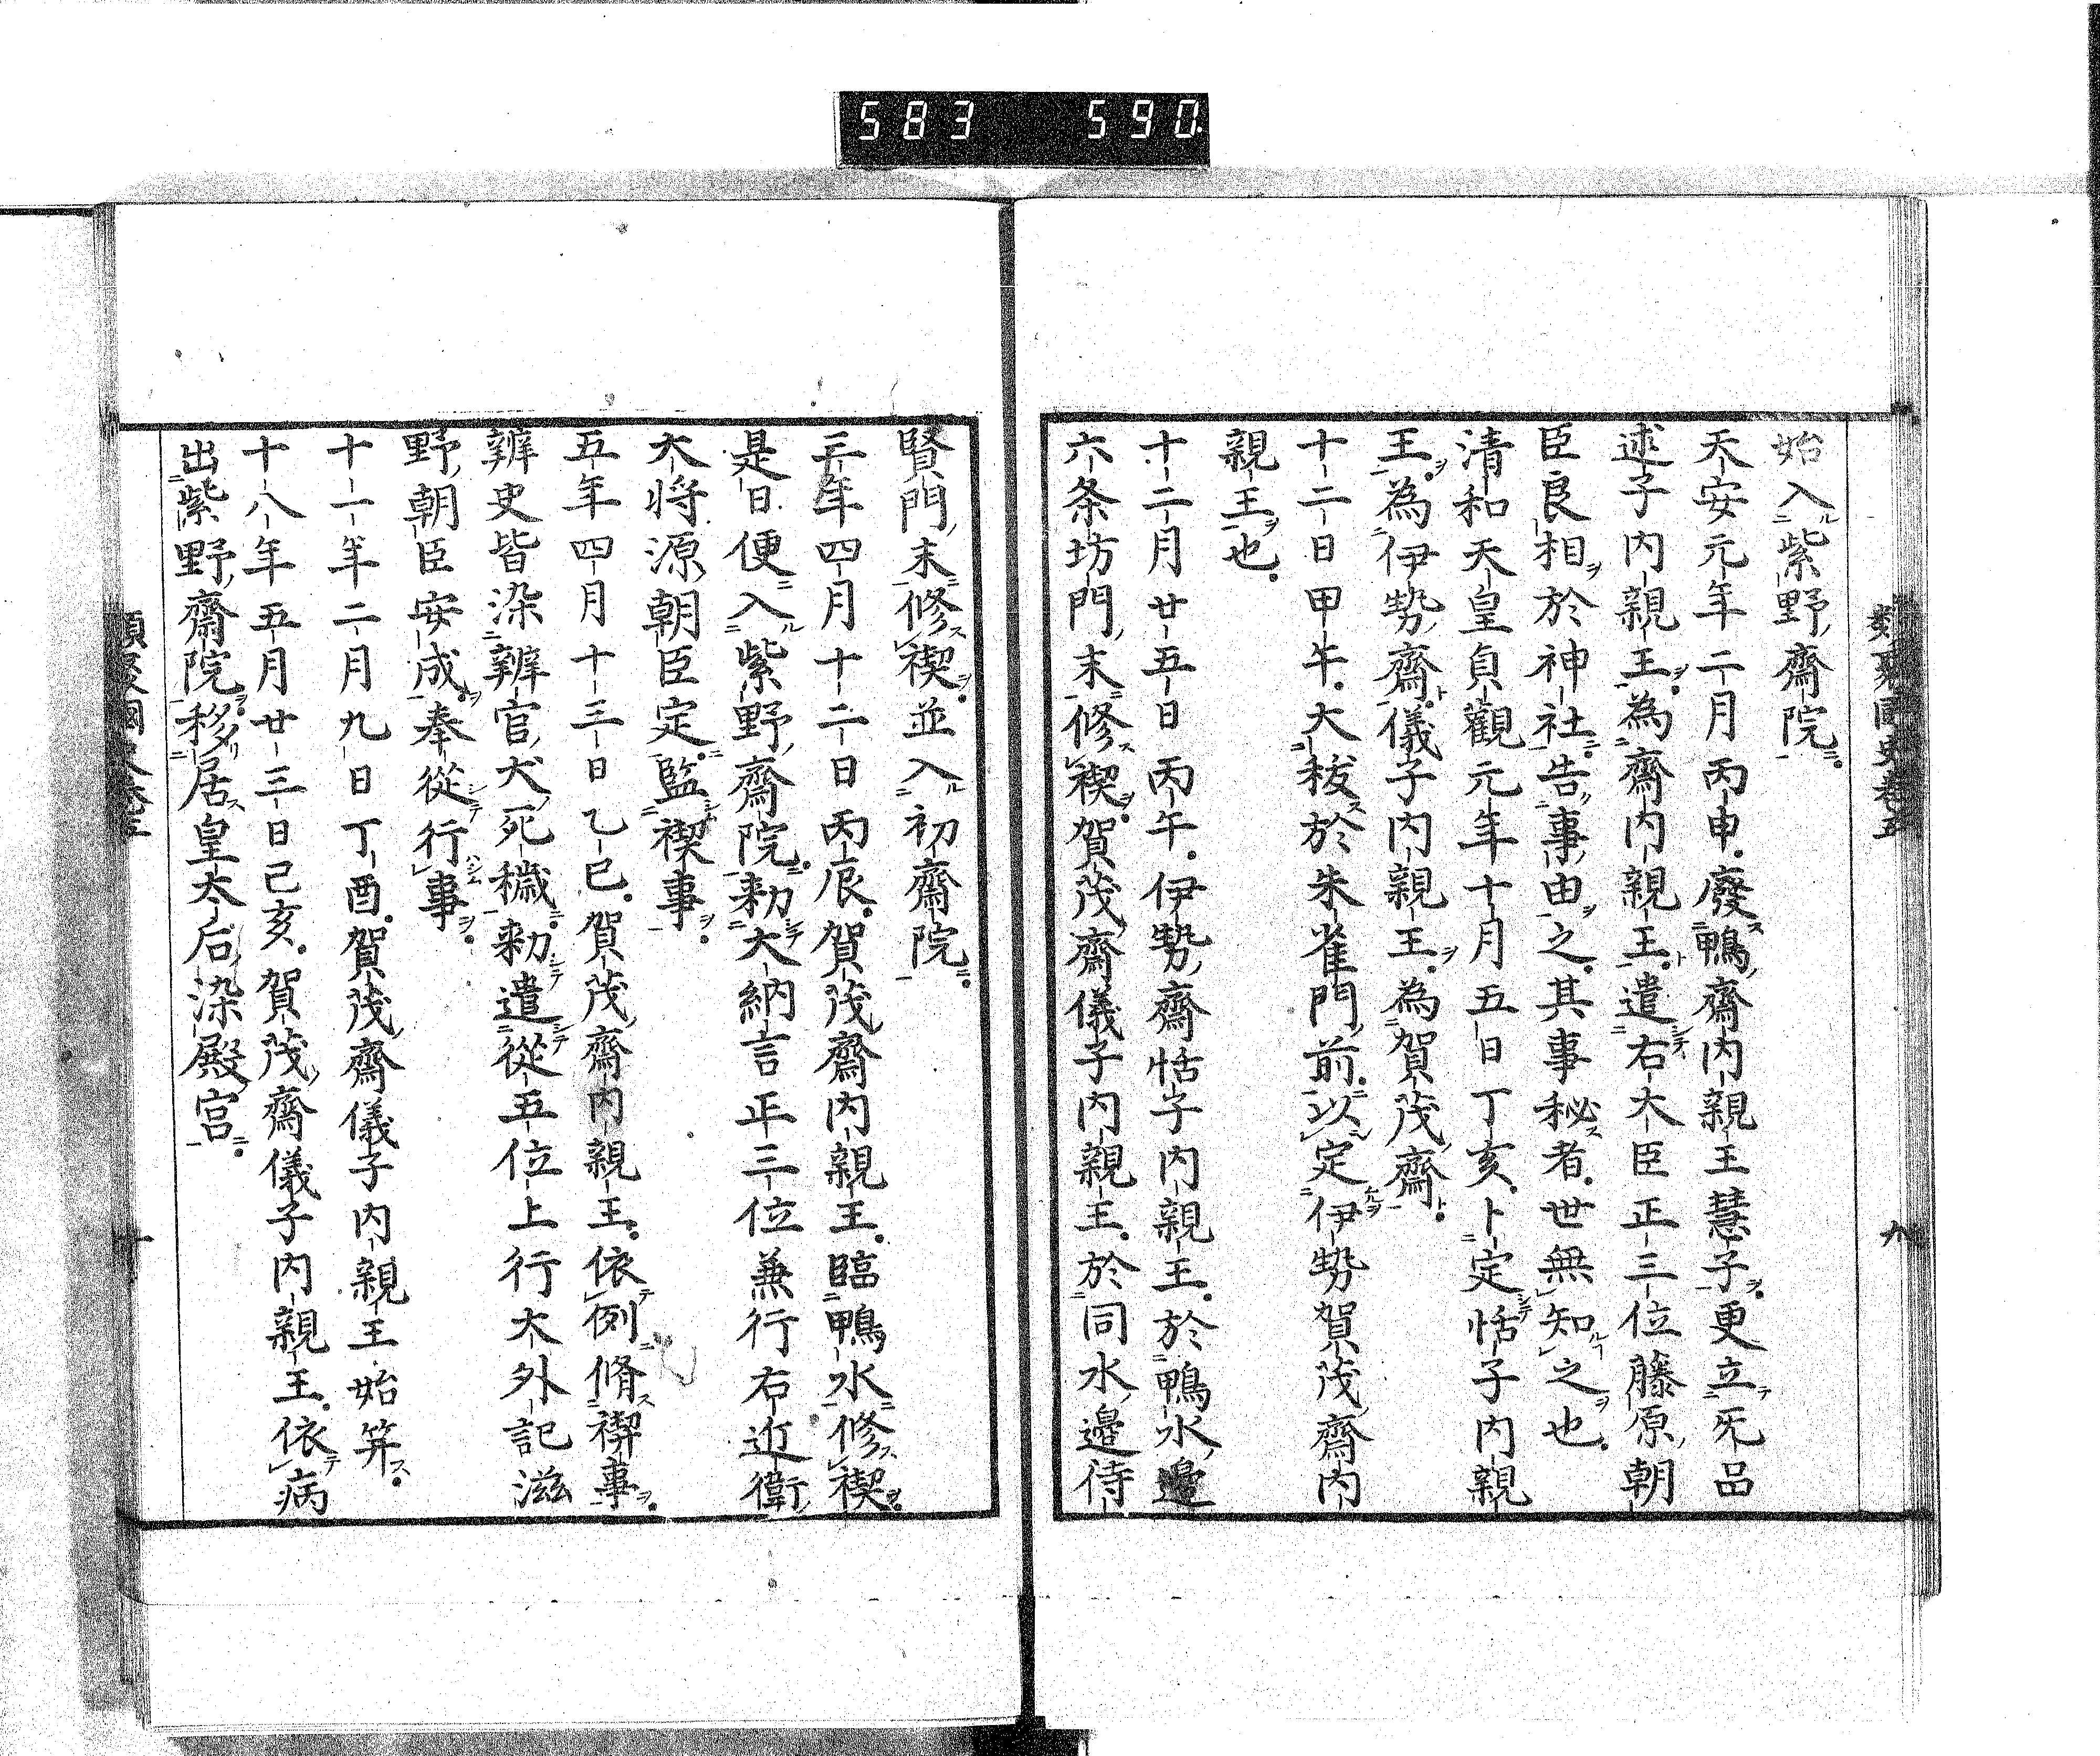 583 590
類聚國史卷五 九
始入紫野齋院
天安元年二月丙申廢鴨齋內親王慧子更立无品
述子內親王為齋內親王遣右大臣正三位藤原朝
臣良相於神社告事由之其事秘者世無知之也
清和天皇貞觀元年十月五日丁亥卜定恬子內親
王為伊勢齋儀子內親王為賀茂齋
十二日甲午大秡於朱雀門前以定伊勢賀茂齋內
親王也
十二月廿五日丙午伊勢齋恬子內親王於鴨水邊
六条坊門末修禊賀茂齋儀子內親王於同水邊待
賢門末修禊並入初齋院
三年四月十二日丙辰賀茂齋內親王臨鴨水修禊
是日便入紫野齋院勑大納言正三位兼行右近衛
大将源朝臣定監禊事
五年四月十三日乙巳賀茂齋內親王依例脩禊事
辨史皆染辨官犬死穢勑遣從五位上行大外記滋
野朝臣安成奉從行事
十一年二月九日丁酉賀茂齋儀子內親王始笄
十八年五月廿三日己亥賀茂齋儀子內親王依病
出紫野齋院移居皇太后染殿宮
類聚國史卷五 十